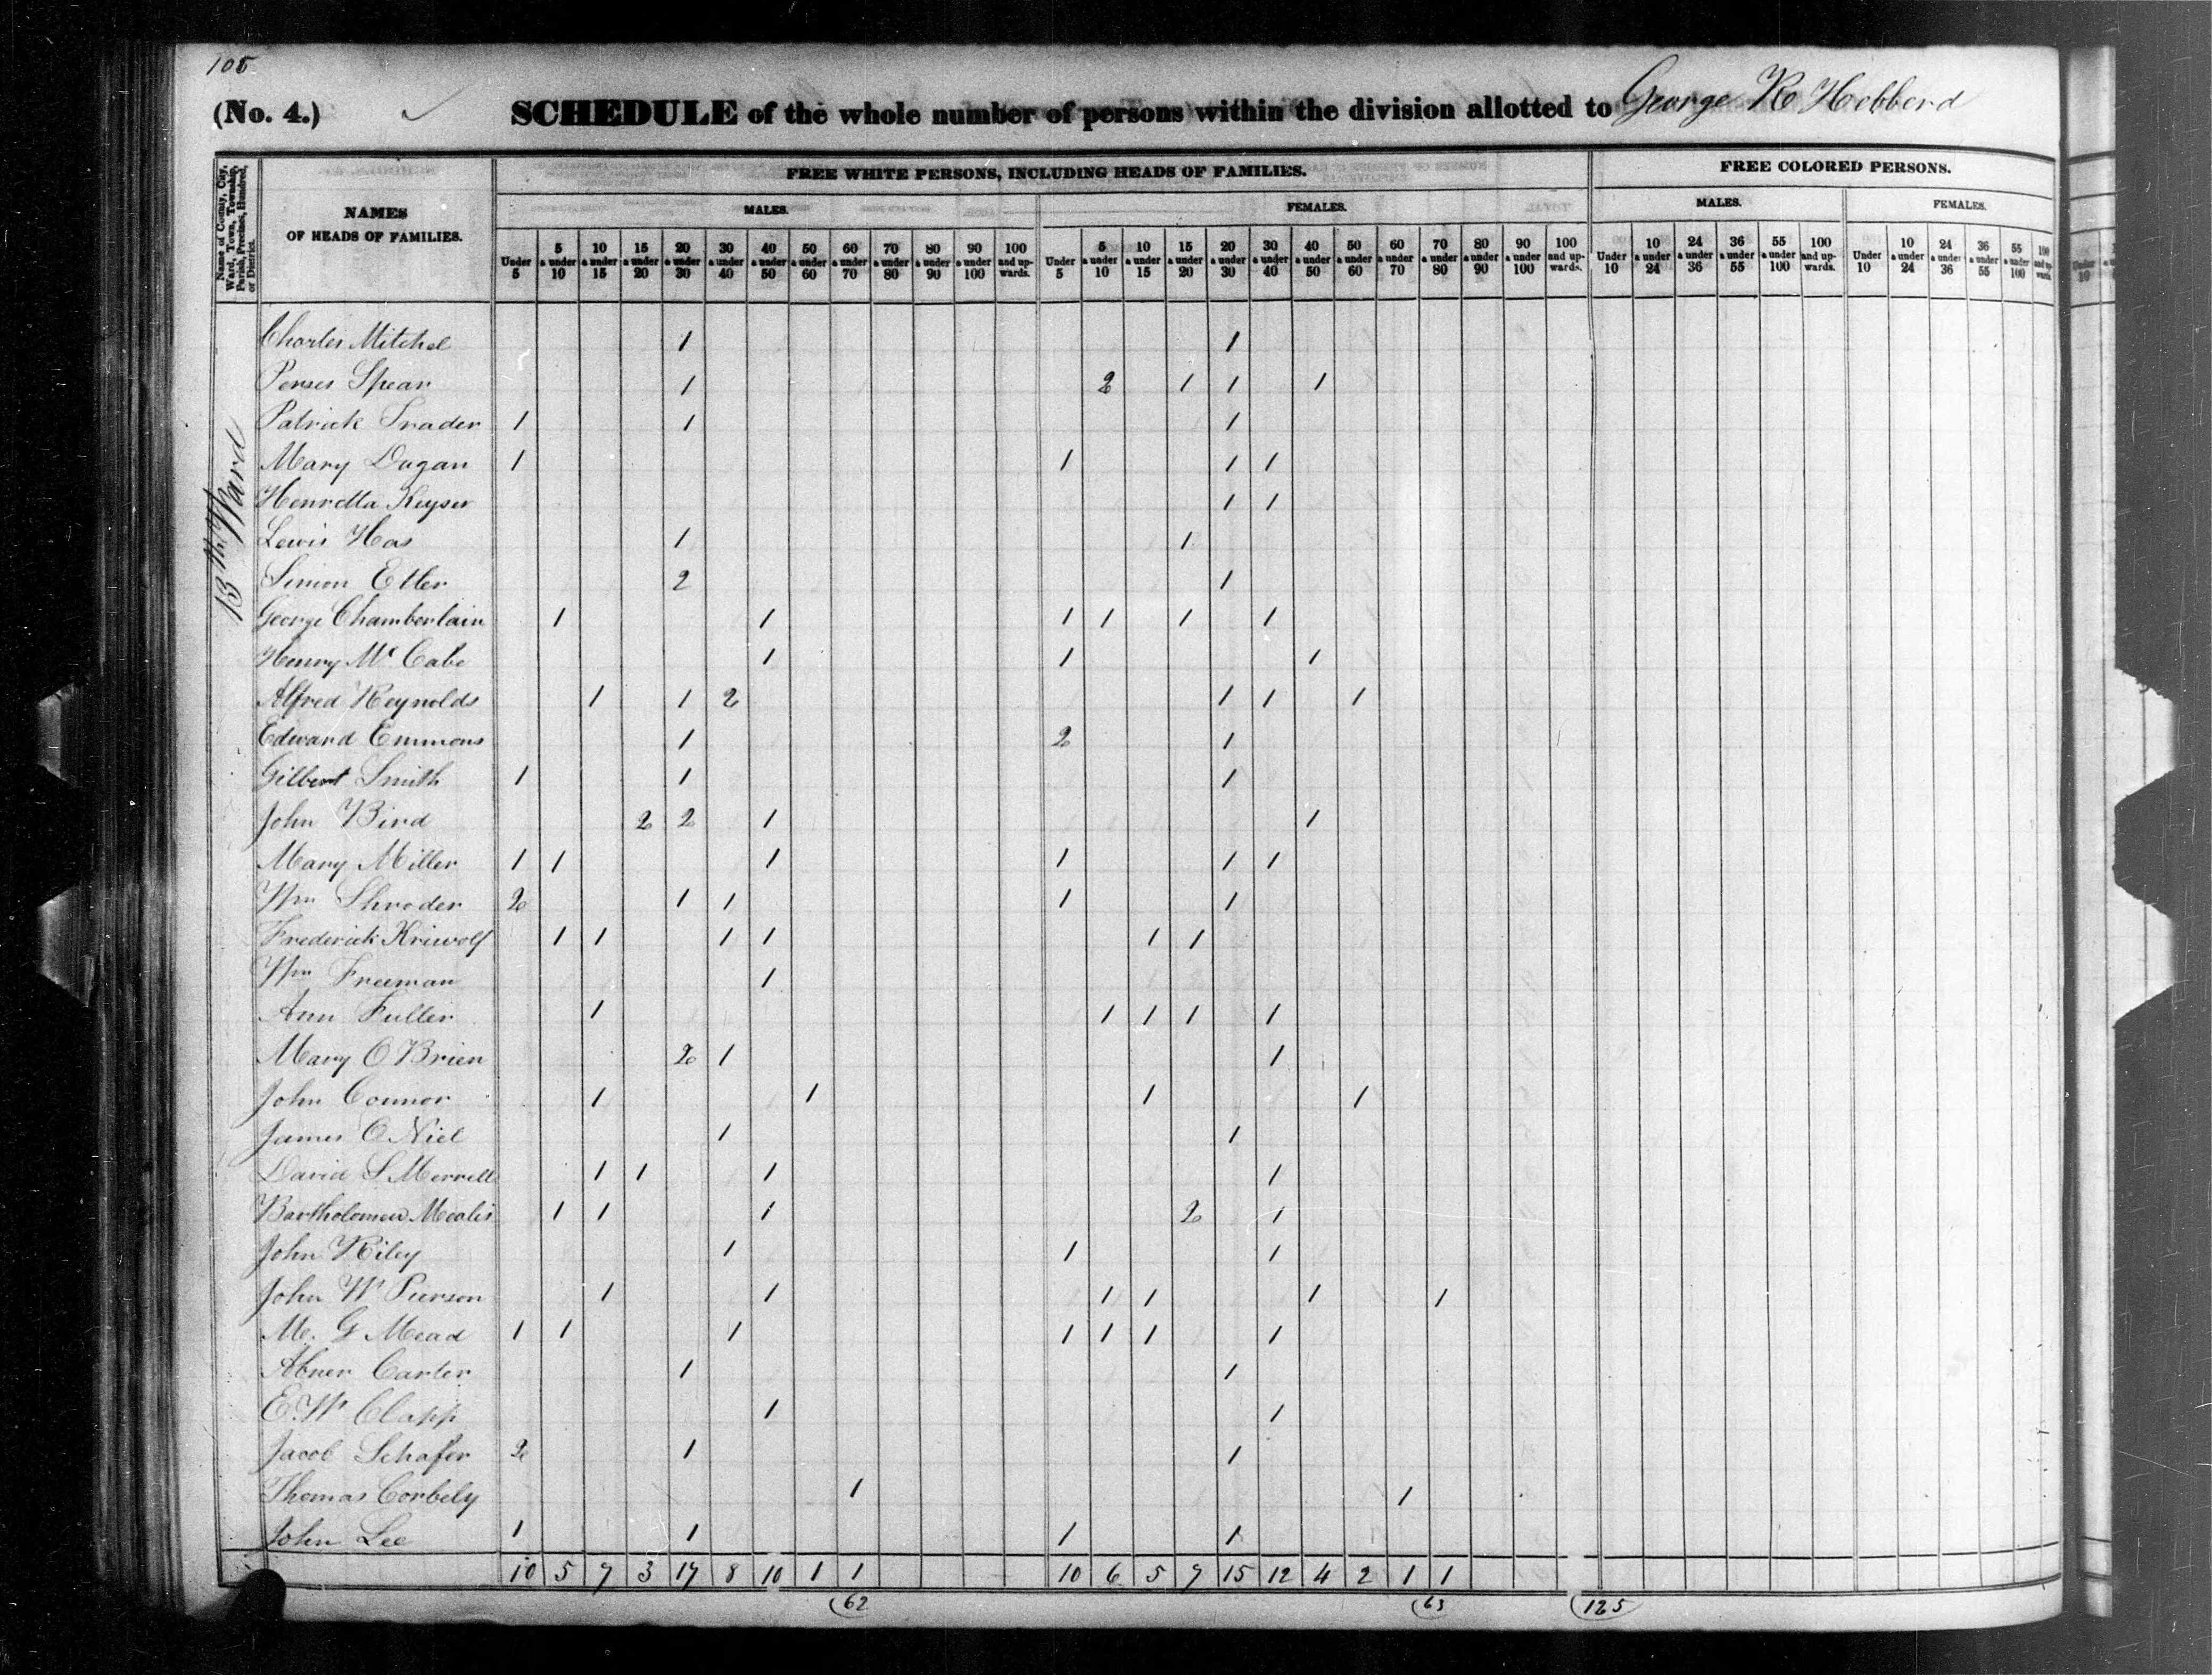 105
(No. 4.) SCHEDULE of the whole number of persons within the division allotted to George R Hebberd
Name of County, City, Ward, Town, Township, Parish, Precinct, Hundred, or District.
NAMES OF HEADS OF FAMILIES.
FREE WHITE PERSONS, INCLUDING HEADS OF FAMILIES.
FREE COLORED PERSONS.
MALES. FEMALES. MALES. FEMALES.
Under 5 | 5 & under 10 | 10 & under 15 | 15 & under 20 | 20 & under 30 | 30 & under 40 | 40 & under 50 | 50 & under 60 | 60 & under 70 | 70 & under 80 | 80 & under 90 | 90 & under 100 | 100 and up-wards. | Under 5 | 5 & under 10 | 10 & under 15 | 15 & under 20 | 20 & under 30 | 30 & under 40 | 40 & under 50 | 50 & under 60 | 60 & under 70 | 70 & under 80 | 80 & under 90 | 90 & under 100 | 100 and up-wards. | Under 10 | 10 & under 24 | 24 & under 36 | 36 & under 55 | 55 & under 100 | 100 and up-wards. | Under 10 | 10 & under 24 | 24 & under 36 | 36 & under 55 | 55 & under 100 | 100 and up-wards.
13th Ward
Charles Mitchel 1 1
Perses Spear 1 2 1 1 1
Patrick Trader 1 1 1
Mary Dugan 1 1 1 1
Henretta Keyser 1 1
Lewis Has 1 1
Simon Etler 2 1
George Chamberlain 1 1 1 1 1 1
Henry Mc Cabe 1 1 1
Alfred Reynolds 1 1 2 1 1 1
Edward Emmons 1 2 1
Gilbert Smith 1 1 1
John Bird 2 2 1 1
Mary Miller 1 1 1 1 1 1
Wm Shroder 2 1 1 1 1
Frederick Kriwolf 1 1 1 1 1 1
Wm Freeman 1
Ann Fuller 1 1 1 1 1
Mary O Brien 2 1 1
John Connor 1 1 1 1
James O Niel 1 1
David S Merrell 1 1 1 1
Bartholomew Mealis 1 1 1 2 1
John Riley 1 1 1
John W Pierson 1 1 1 1 1 1
M. G Mead 1 1 1 1 1 1 1
Abner Carter 1 1
E. W Clapp 1 1
Jacob Schafer 2 1 1
Thomas Corbely 1 1
John Lee 1 1 1 1
10 5 7 3 17 8 10 1 1 10 6 5 7 15 12 4 2 1 1
62 63 125